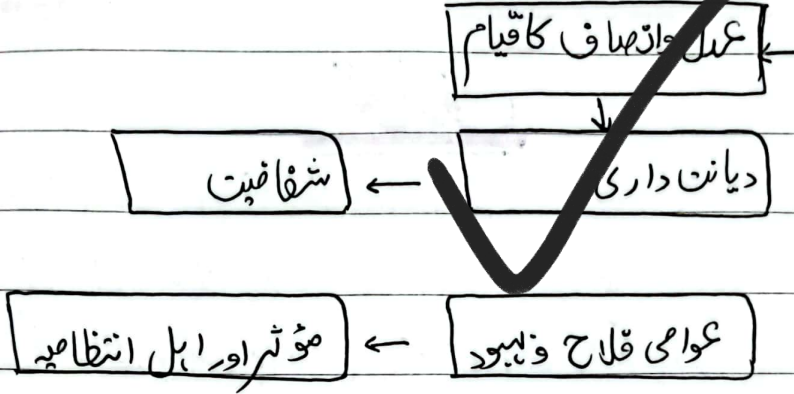 عدل وانصاف کا قیام
دیانت داری ← شفافیت
عوامی فلاح و بہبود ← مؤثر اور اہل انتظامیہ